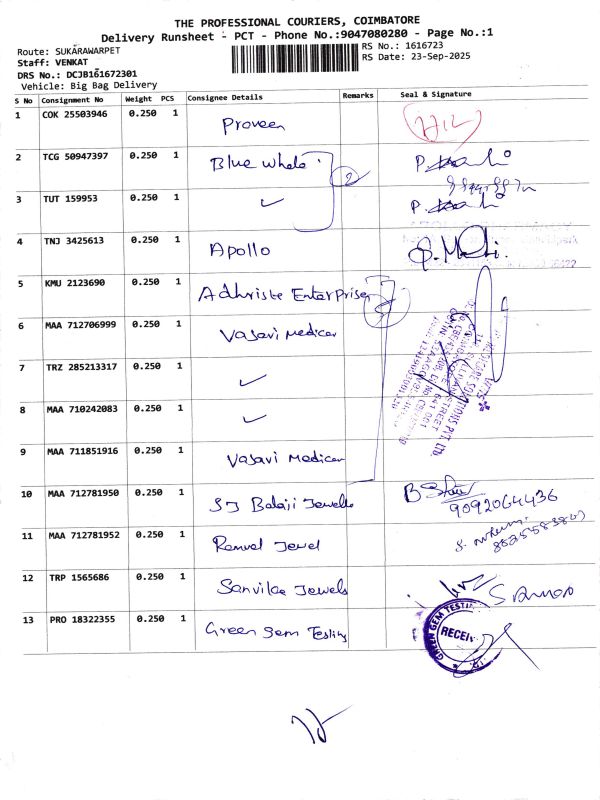 THE PROFESSIONAL COURIERS, COIMBATORE
Delivery Runsheet - PCT - Phone No.:9047080280 - Page No.:1
Route: SUKARAWARPET
RS No.: 1616723
Staff: VENKAT
RS Date: 23-Sep-2025
DRS No.: DCJB161672301
Vehicle: Big Bag Delivery
S No Consignment No Weight PCS Consignee Details Remarks Seal & Signature
1 COK 25503946 0.250 1 Praveen
2 TCG 50947397 0.250 1 Blue Whale 2
3 TUT 159953 0.250 1 ✓
4 TNJ 3425613 0.250 1 Apollo
5 KMU 2123690 0.250 1 Adhriste Enterprises
6 MAA 712706999 0.250 1 Vasavi Medicar
7 TRZ 285213317 0.250 1 ✓
8 MAA 710242083 0.250 1 ✓
9 MAA 711851916 0.250 1 Vasavi Medicar
10 MAA 712781950 0.250 1 SJ Balaji Jewells
9092064436
11 MAA 712781952 0.250 1 Jewel
12 TRP 1565686 0.250 1 Jewels
13 PRO 18322355 0.250 1 Green Gem Testing
GREEN GEM TESTING
RECEIV